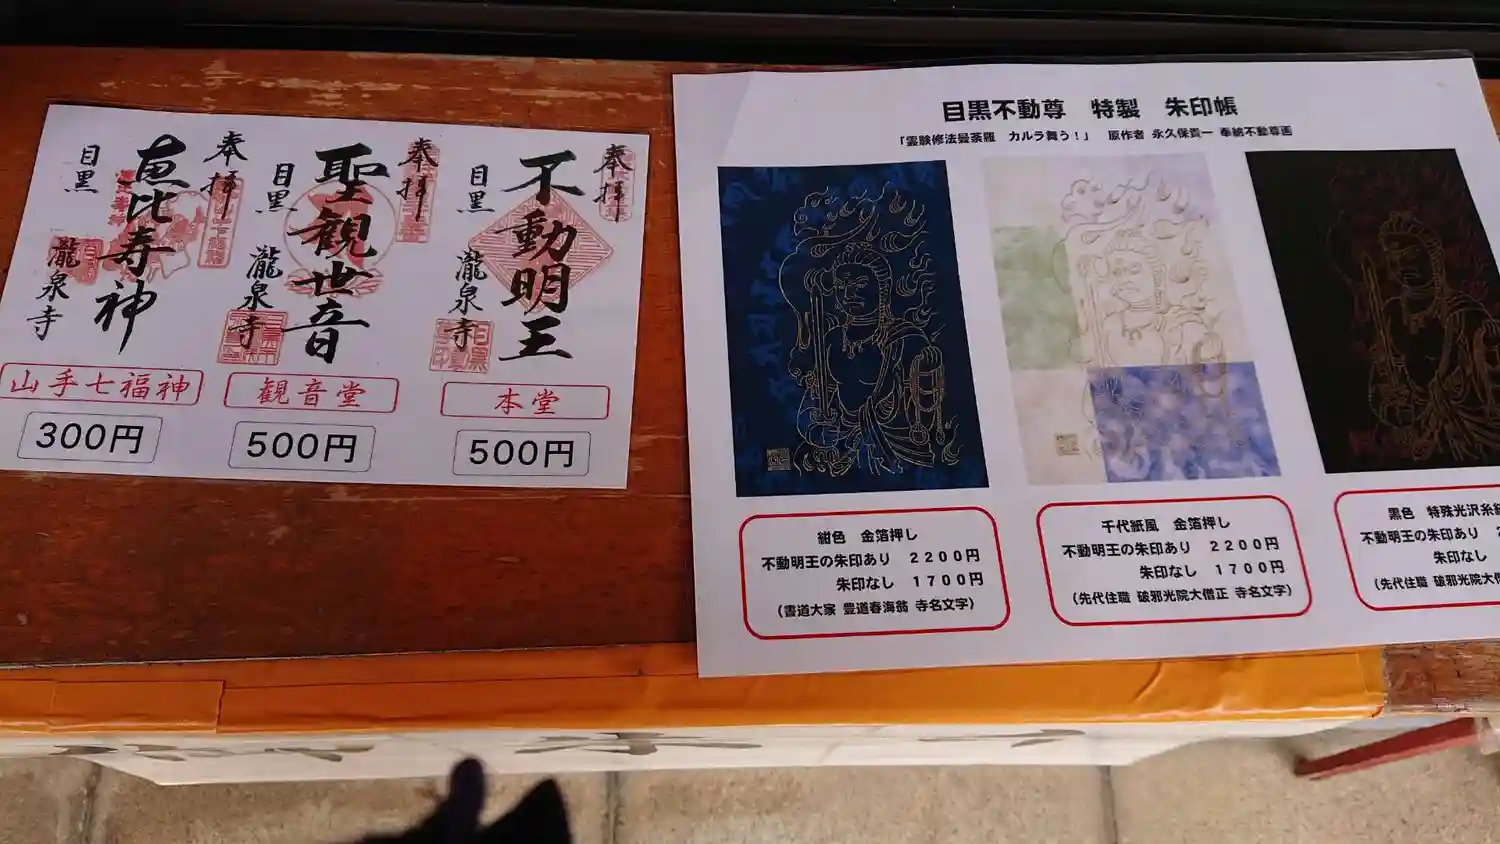 奉拝
恵比寿神
目黒
瀧泉寺
山手七福神
300円
奉拝
聖観世音
目黒
瀧泉寺
観音堂
500円
奉拝
不動明王
目黒
瀧泉寺
本堂
500円
目黒不動尊 特製 朱印帳
「霊験修法曼荼羅 カルラ舞う！」 原作者 永久保貴一 奉納不動尊画
紺色 金箔押し
不動明王の朱印あり 2200円
朱印なし 1700円
(書道大家 豊道春海翁 寺名文字)
千代紙風 金箔押し
不動明王の朱印あり 2200円
朱印なし 1700円
(先代住職 破邪光院大僧正 寺名文字)
黒色 特殊光沢糸
不動明王の朱印あり
朱印なし
(先代住職 破邪光院大僧